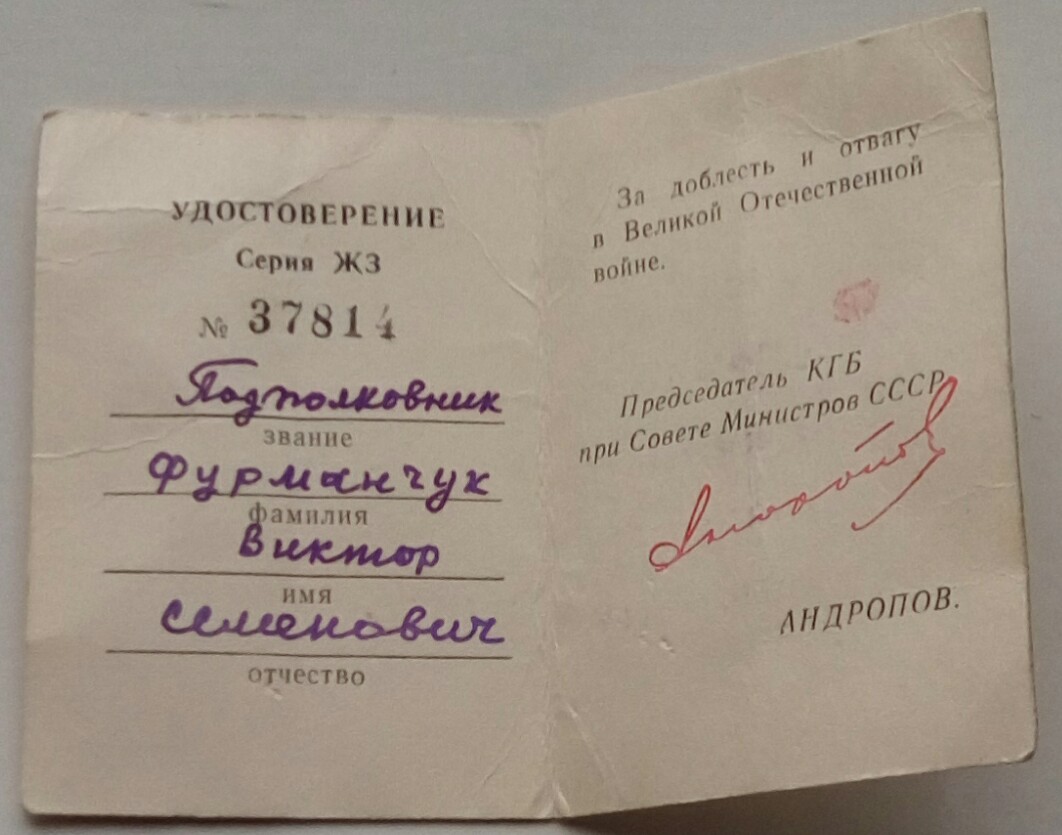 УДОСТОВЕРЕНИЕ
Серия ЖЗ
№ 37814
Подполковник
звание
Фурманчук
фамилия
Виктор
имя
Семенович
отчество
За доблесть и отвагу
в Великой Отечественной
войне.
Председатель КГБ
при Совете Министров СССР
Андропов
АНДРОПОВ.